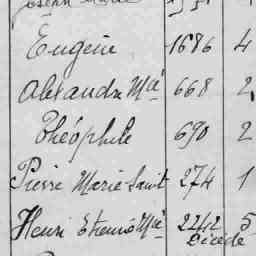 Joseph Marie
Eugène 1686 4
Alexandre Mie 668 2
Théophile 690 2
Pierre Marie 274 1
Henri Etienne Mie 2242 5
Décédé